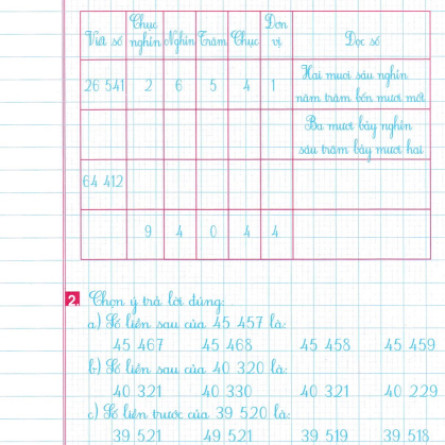 Viết số Chục nghìn Nghìn Trăm Chục Đơn vị Đọc số
26 541 2 6 5 4 1 Hai mươi sáu nghìn
năm trăm bốn mươi mốt
Ba mươi bảy nghìn
sáu trăm bảy mươi hai
64 412
9 4 0 4 4
2. Chọn ý trả lời đúng:
a) Số liền sau của 45 457 là:
45 467 45 468 45 458 45 459
b) Số liền sau của 40 320 là:
40 321 40 330 40 321 40 229
c) Số liền trước của 39 520 là:
39 521 49 521 39 519 39 518